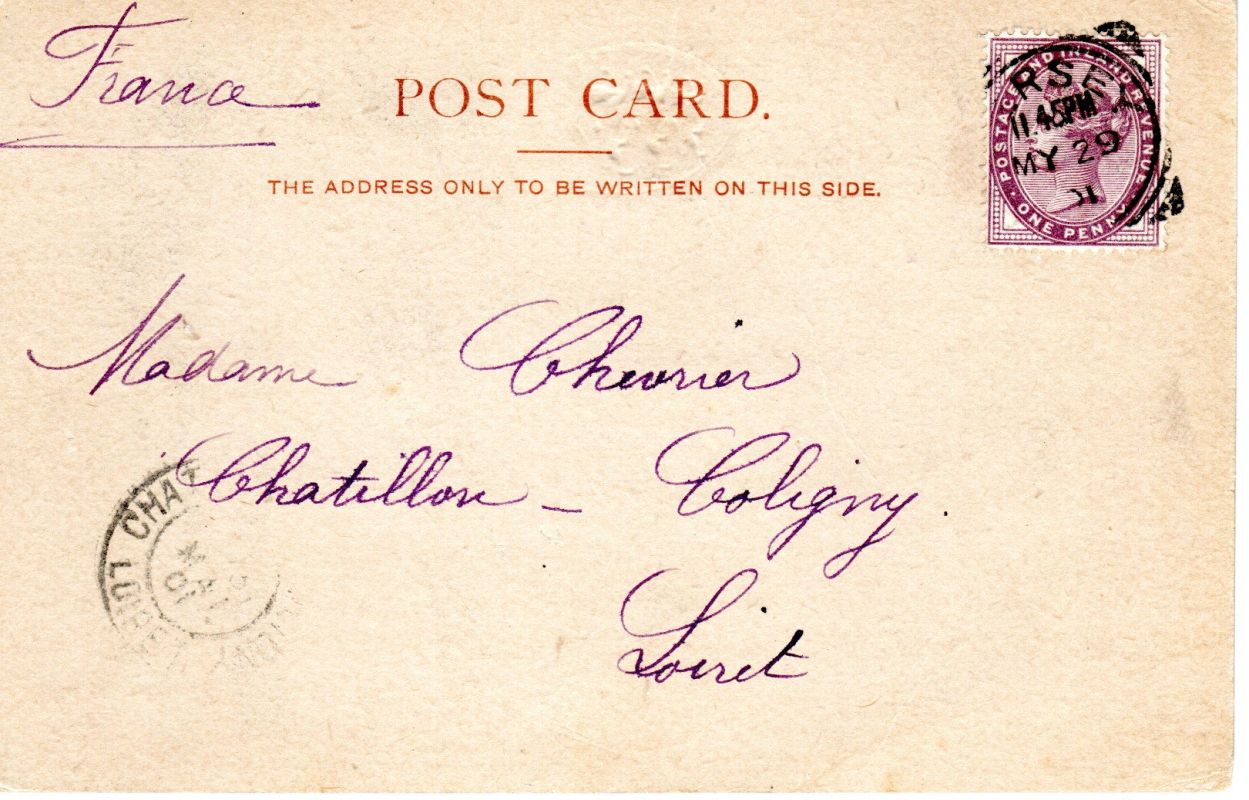 France
POST CARD.
THE ADDRESS ONLY TO BE WRITTEN ON THIS SIDE.
POSTAGE AND INLAND REVENUE
ONE PENNY
RSEY
11.45PM
MY 29
01
Madame Chevrier
Chatillon - Coligny.
Loiret
CHAT
MAI
01
LOIRET